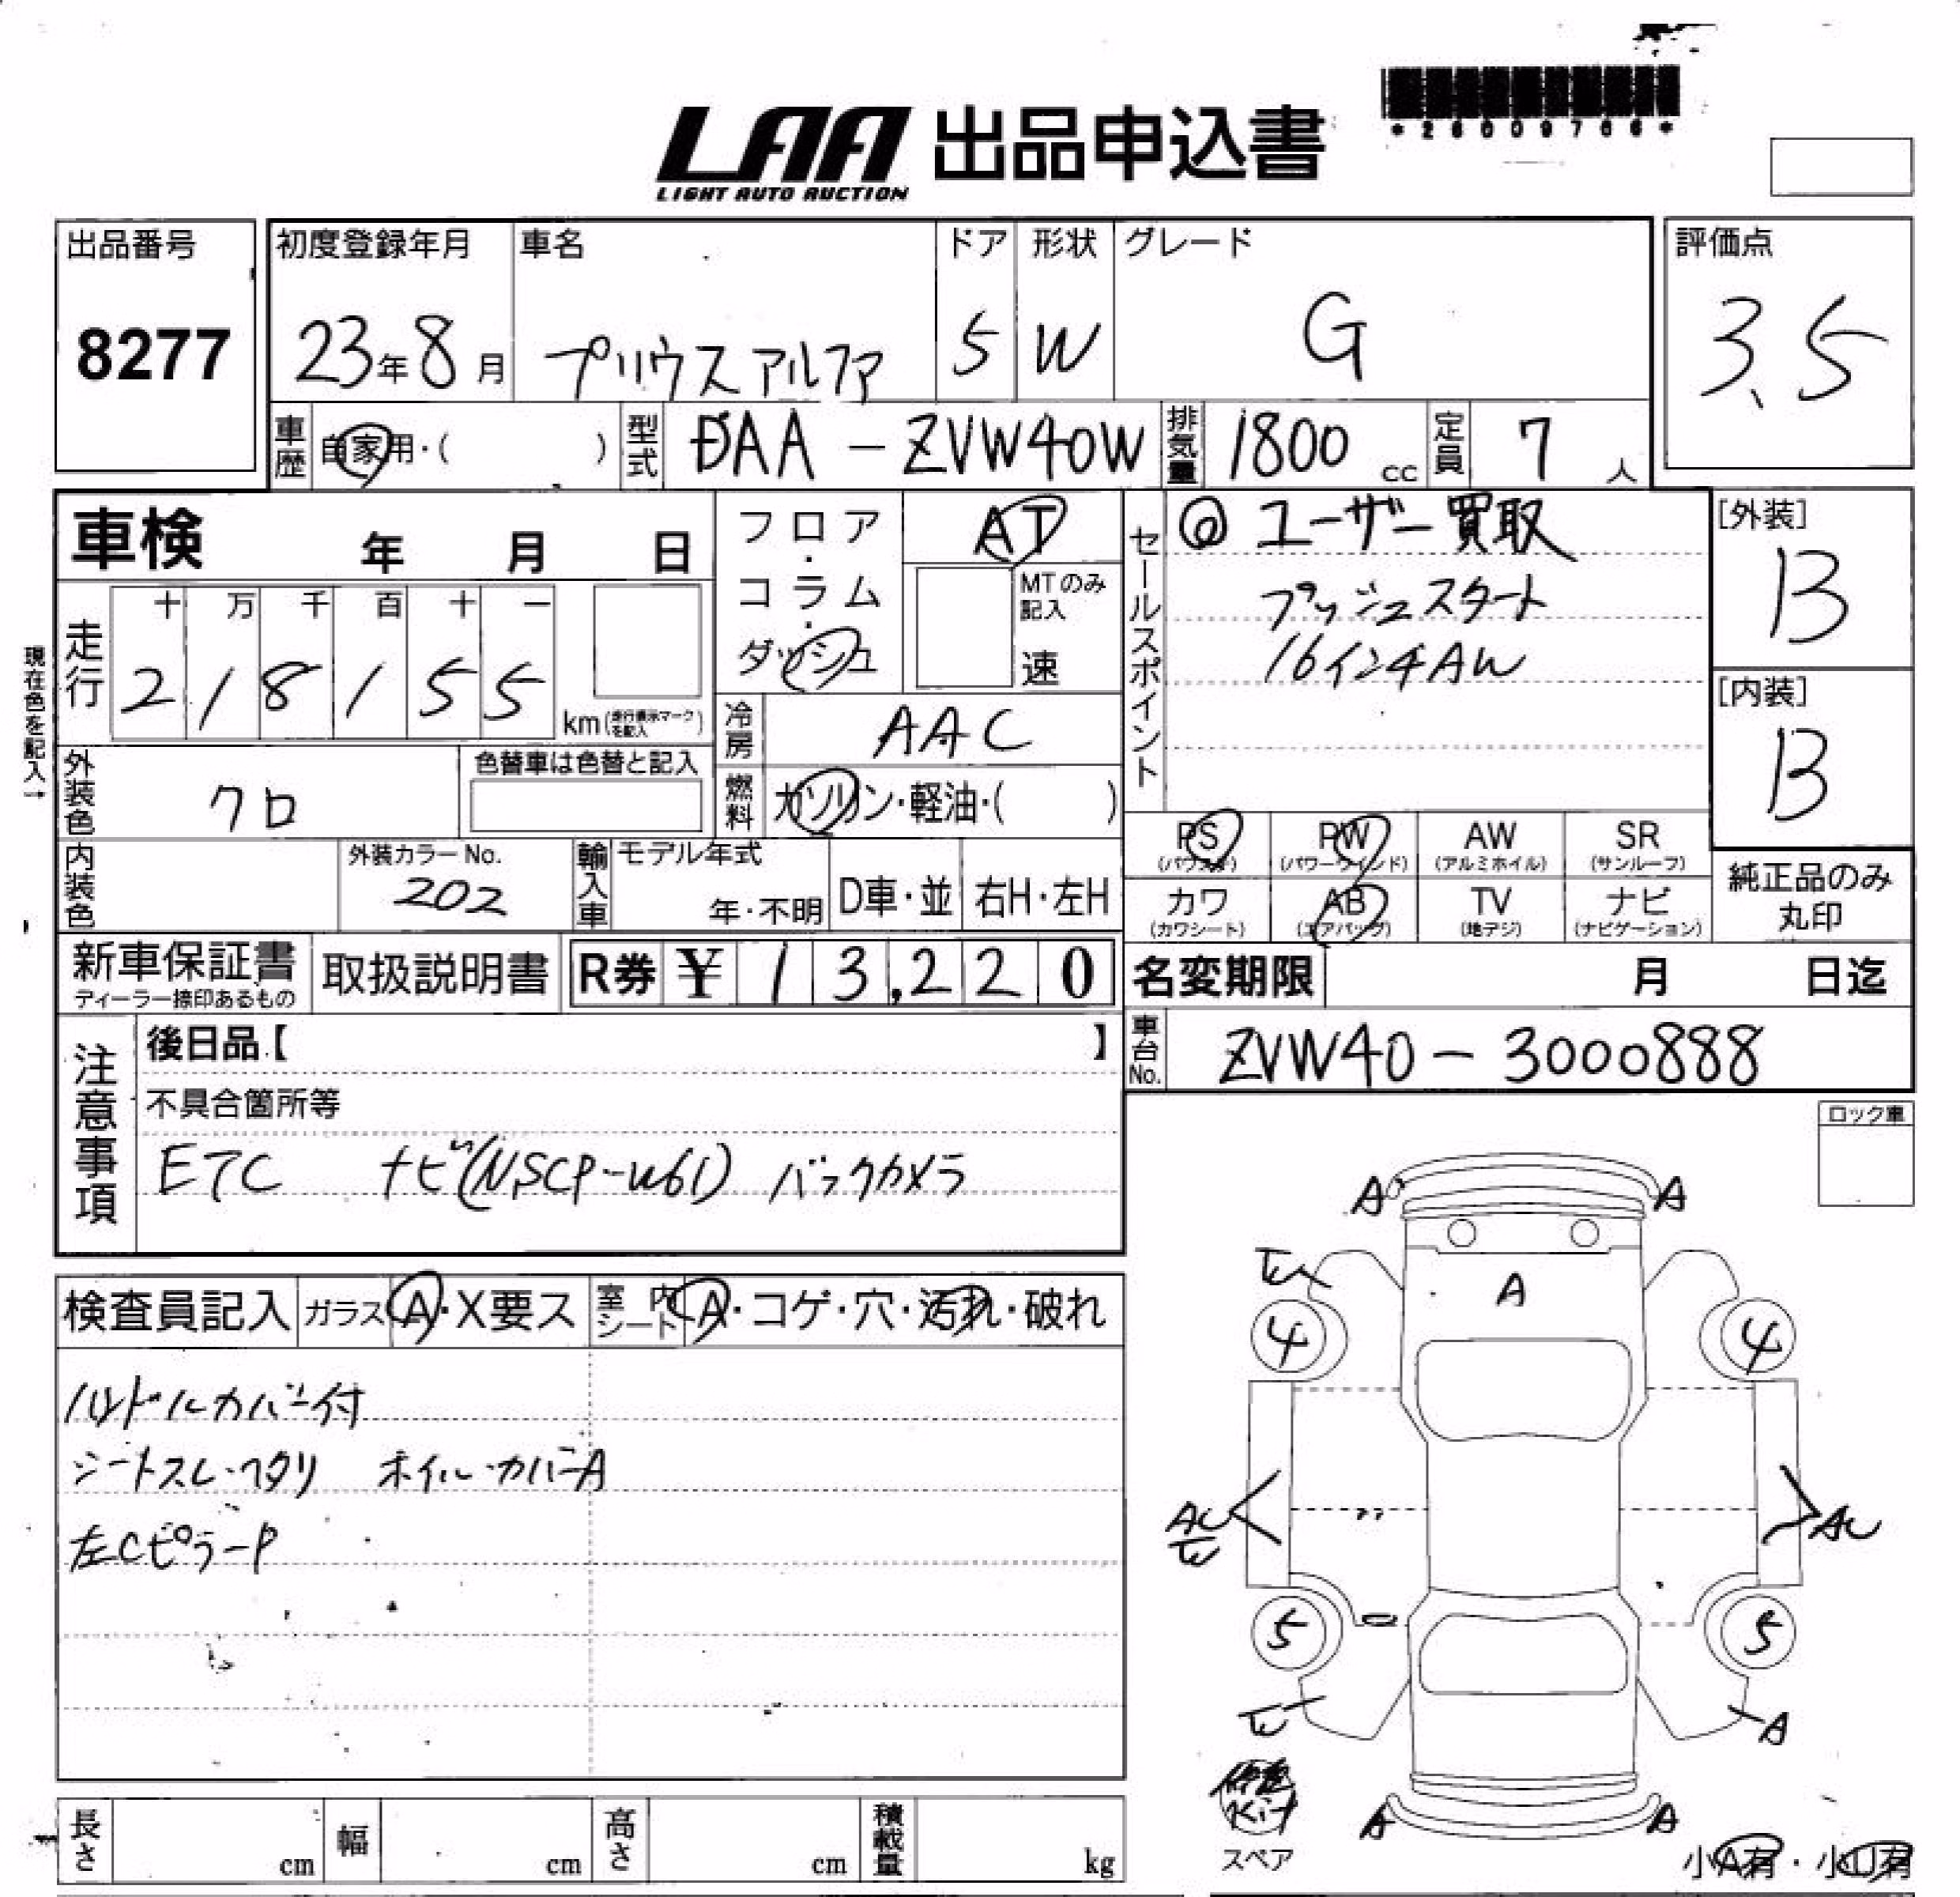 LAA 出品申込書
LIGHT AUTO AUCTION
*26009706*
出品番号
8277
初度登録年月
23年8月
車名
プリウスアルファ
ドア
5
形状
W
グレード
G
評価点
3.5
車歴
自家用・( )
型式
DAA-ZVW40W
排気量
1800 cc
定員
7 人
車検 年 月 日
フロア・コラム・ダッシュ
AT
MTのみ記入
速
セールスポイント
◎ ユーザー買取
プッシュスタート
16インチAW
[外装]
B
[内装]
B
現在色を記入→
走行
十 万 千 百 十 一
2 1 8 1 5 5
km(走行表示マークを記入)
冷房
AAC
燃料
ガソリン・軽油・( )
外装色
クロ
色替車は色替と記入
内装色
外装カラーNo.
202
輸入車
モデル年式
年・不明
D車・並
右H・左H
PS
(パワステ)
PW
(パワーウインド)
AW
(アルミホイル)
SR
(サンルーフ)
カワ
(カワシート)
AB
(エアバッグ)
TV
(地デジ)
ナビ
(ナビゲーション)
純正品のみ
丸印
新車保証書
ディーラー捺印あるもの
取扱説明書
R券 ¥ 13,220
名変期限 月 日迄
車台No.
ZVW40-3000888
注意事項
後日品【 】
不具合箇所等
ETC ナビ(NSCP-W61) バックカメラ
ロック車
検査員記入
ガラス
A・X要ス
室内シート
A・コゲ・穴・汚れ・破れ
ハンドルカバー付
シートスレ・ヘタリ ホイルカバーA
左CピラーP
A A
A
4 4
AU
5 5
A
A A
Kit
スペア
長さ cm
幅 cm
高さ cm
積載量 kg
小A有・小U有